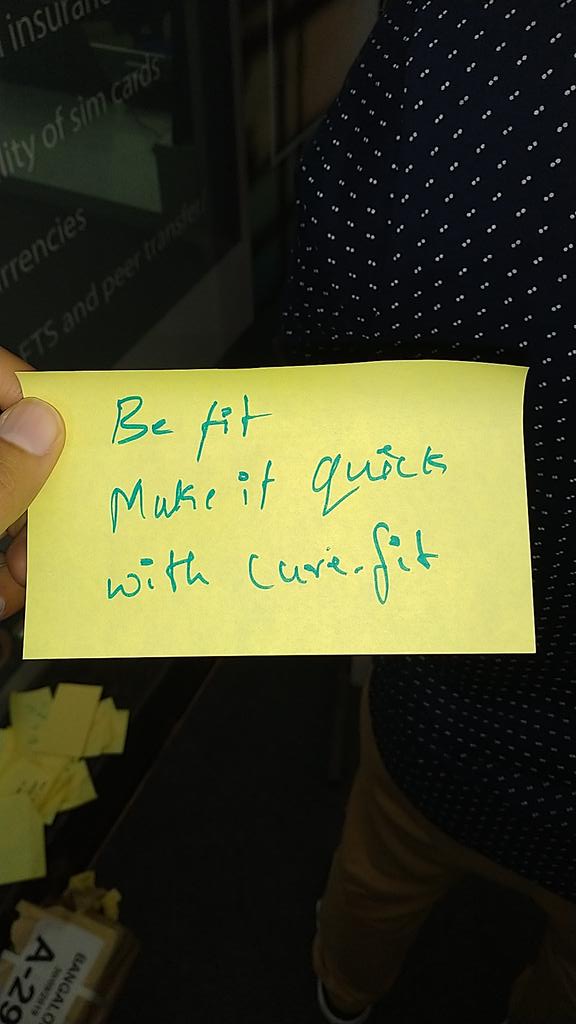 insuran
lity of sim cards
rrencies
ETS and peer transfer
Be fit
Make it quick
with cure.fit
BANGALO
30/08/2019
A-29